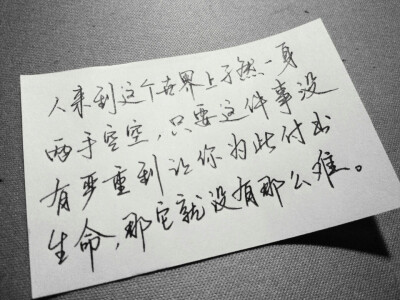 人来到这个世界上孑然一身
两手空空，只要这件事没
有严重到让你为此付出
生命，那它就没有那么难。